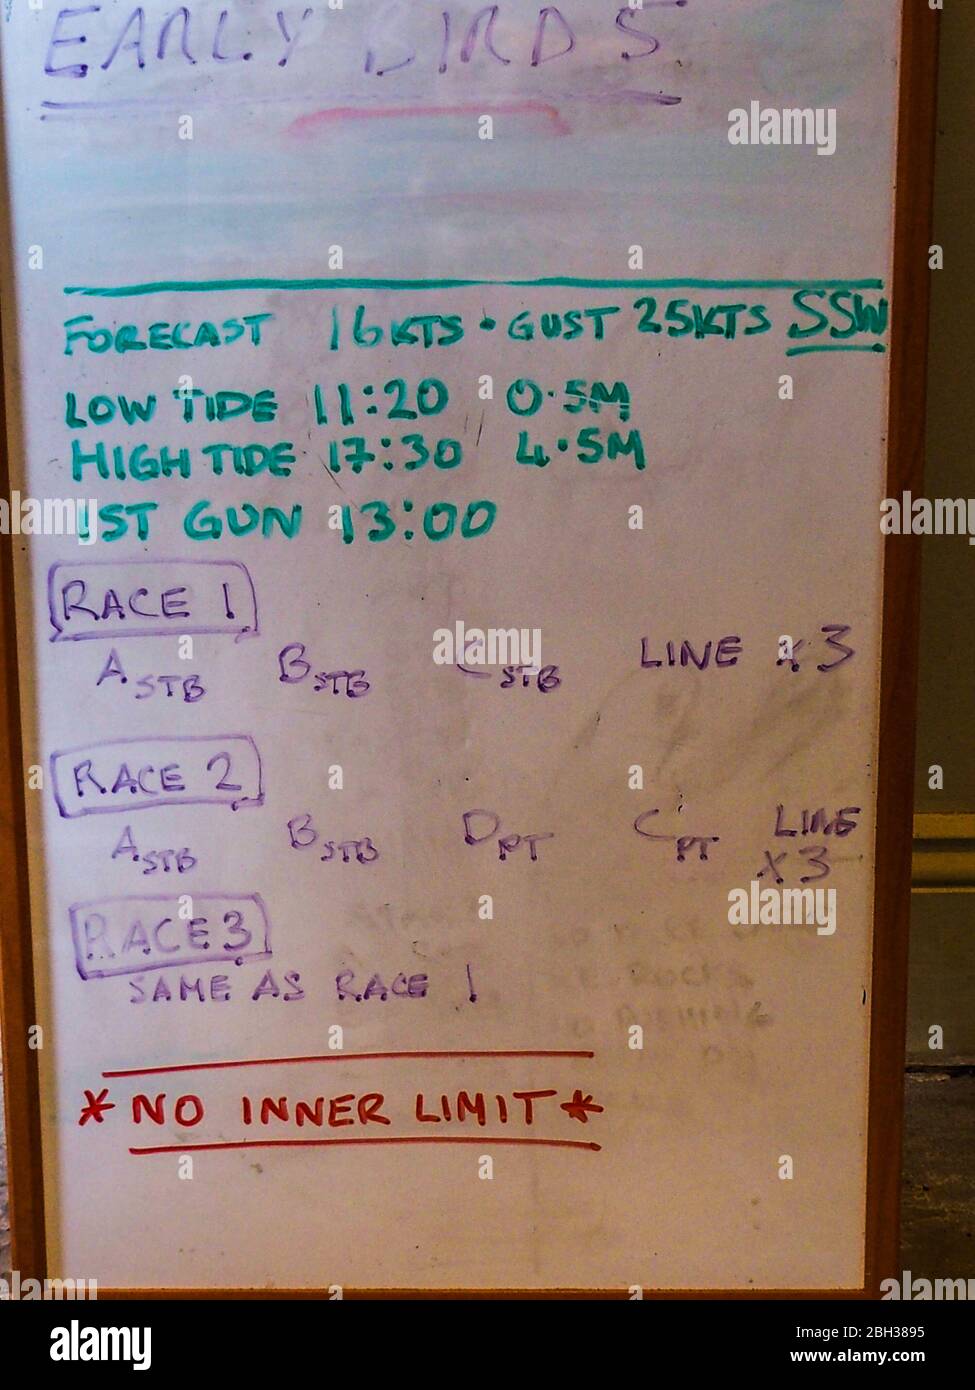 EARLY BIRDS
FORECAST 16KTS • GUST 25KTS SSW
LOW TIDE 11:20 0.5M
HIGH TIDE 17:30 4.5M
1ST GUN 13:00
RACE 1
A STB B STB C STB LINE x 3
RACE 2
A STB B STB D PT C PT LINE
x 3
RACE 3
SAME AS RACE 1
* NO INNER LIMIT *
alamy
Image ID: 2BH3895
www.alamy.com